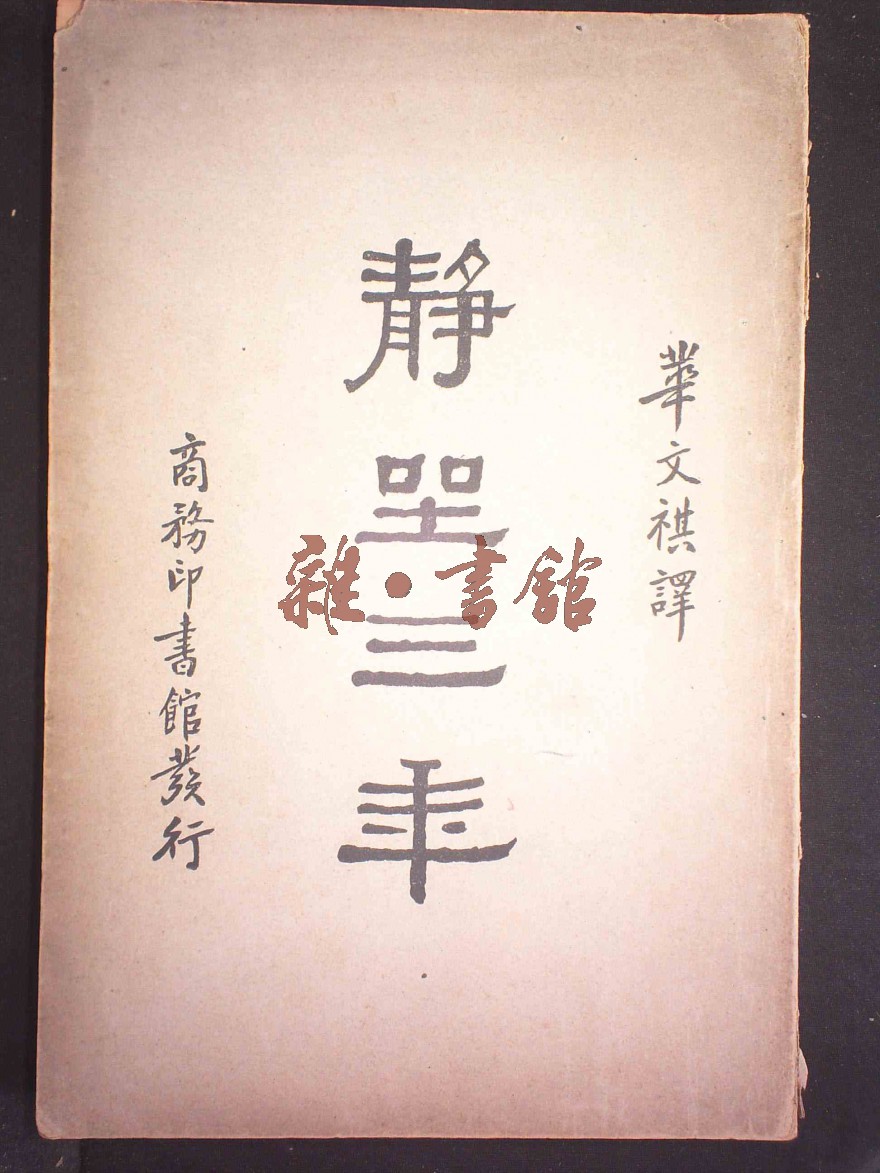 華文祺譯
靜坐三年
商務印書館發行
雜·書館